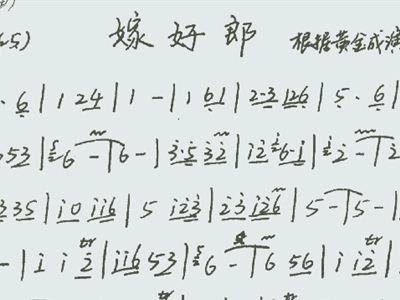 65) 嫁好郎 根据黄金成演
· 6 | 1 2 4 | 1 - | 1 6 1 | 2·3 1 2 6 | 5 · 6 |
5 3 | 6 - | 6 - | 3·5 3 2 | 1 2 6·1 | 2 - | 2
3 3 5 | 1 0 1 1 6 | 5 1 2 3 | 2 3 1 2 6 | 5 - | 5 - |
- | 1 1 2 | 1 1 6 5 3 | 5 6 - | 6 5 6 | 1 1 2 |
tr tr tr